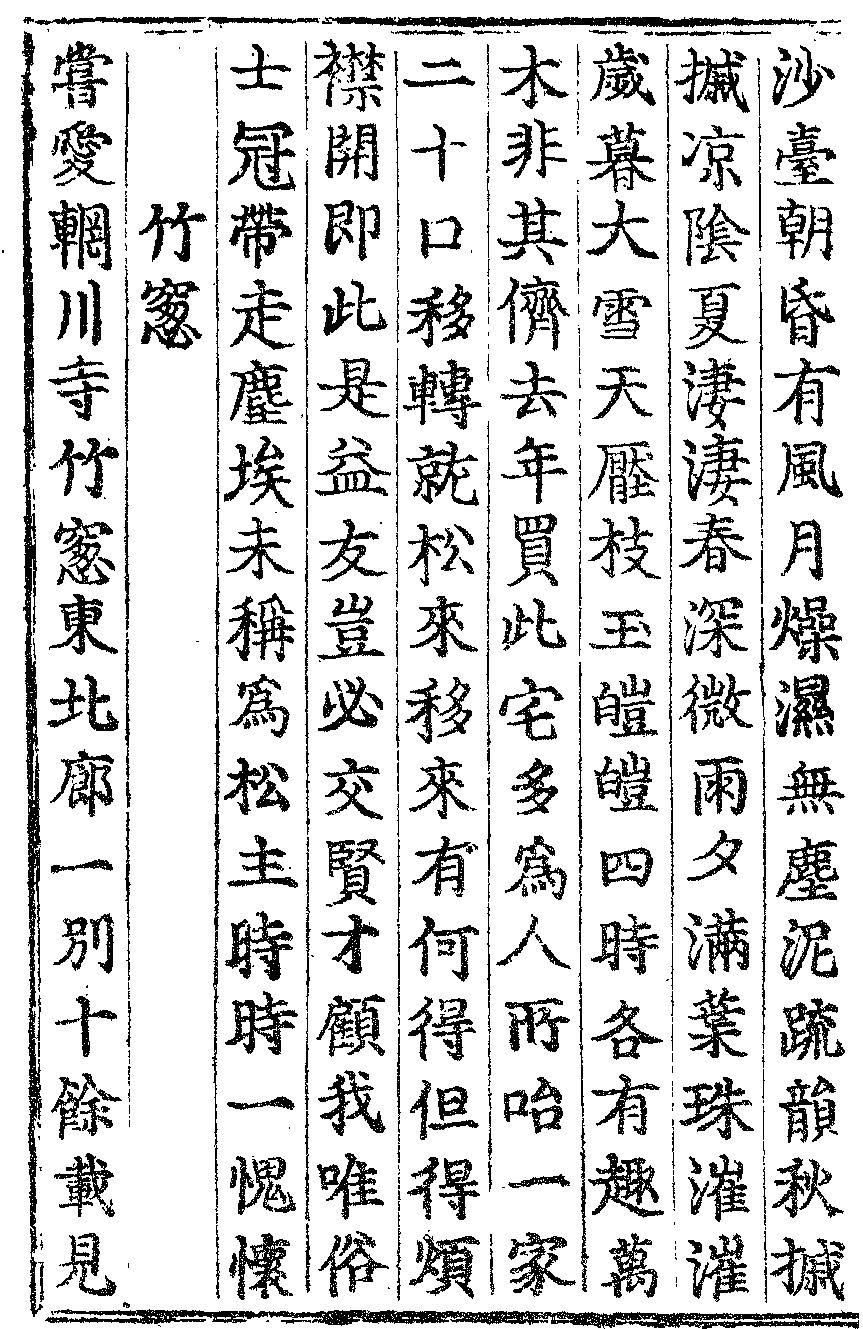 沙臺朝昏有風月燥濕無塵泥疏韻秋摵
摵凉陰夏淒淒春深微雨夕滿葉珠漼漼
歲暮大雪天壓枝玉皚皚四時各有趣萬
木非其儕去年買此宅多爲人所咍一家
二十口移轉就松來移來有何得但得煩
襟開即此是益友豈必交賢才顧我唯俗
士冠帶走塵埃未稱爲松主時時一愧懷
竹窻
嘗愛輞川寺竹窻東北廊一別十餘載見